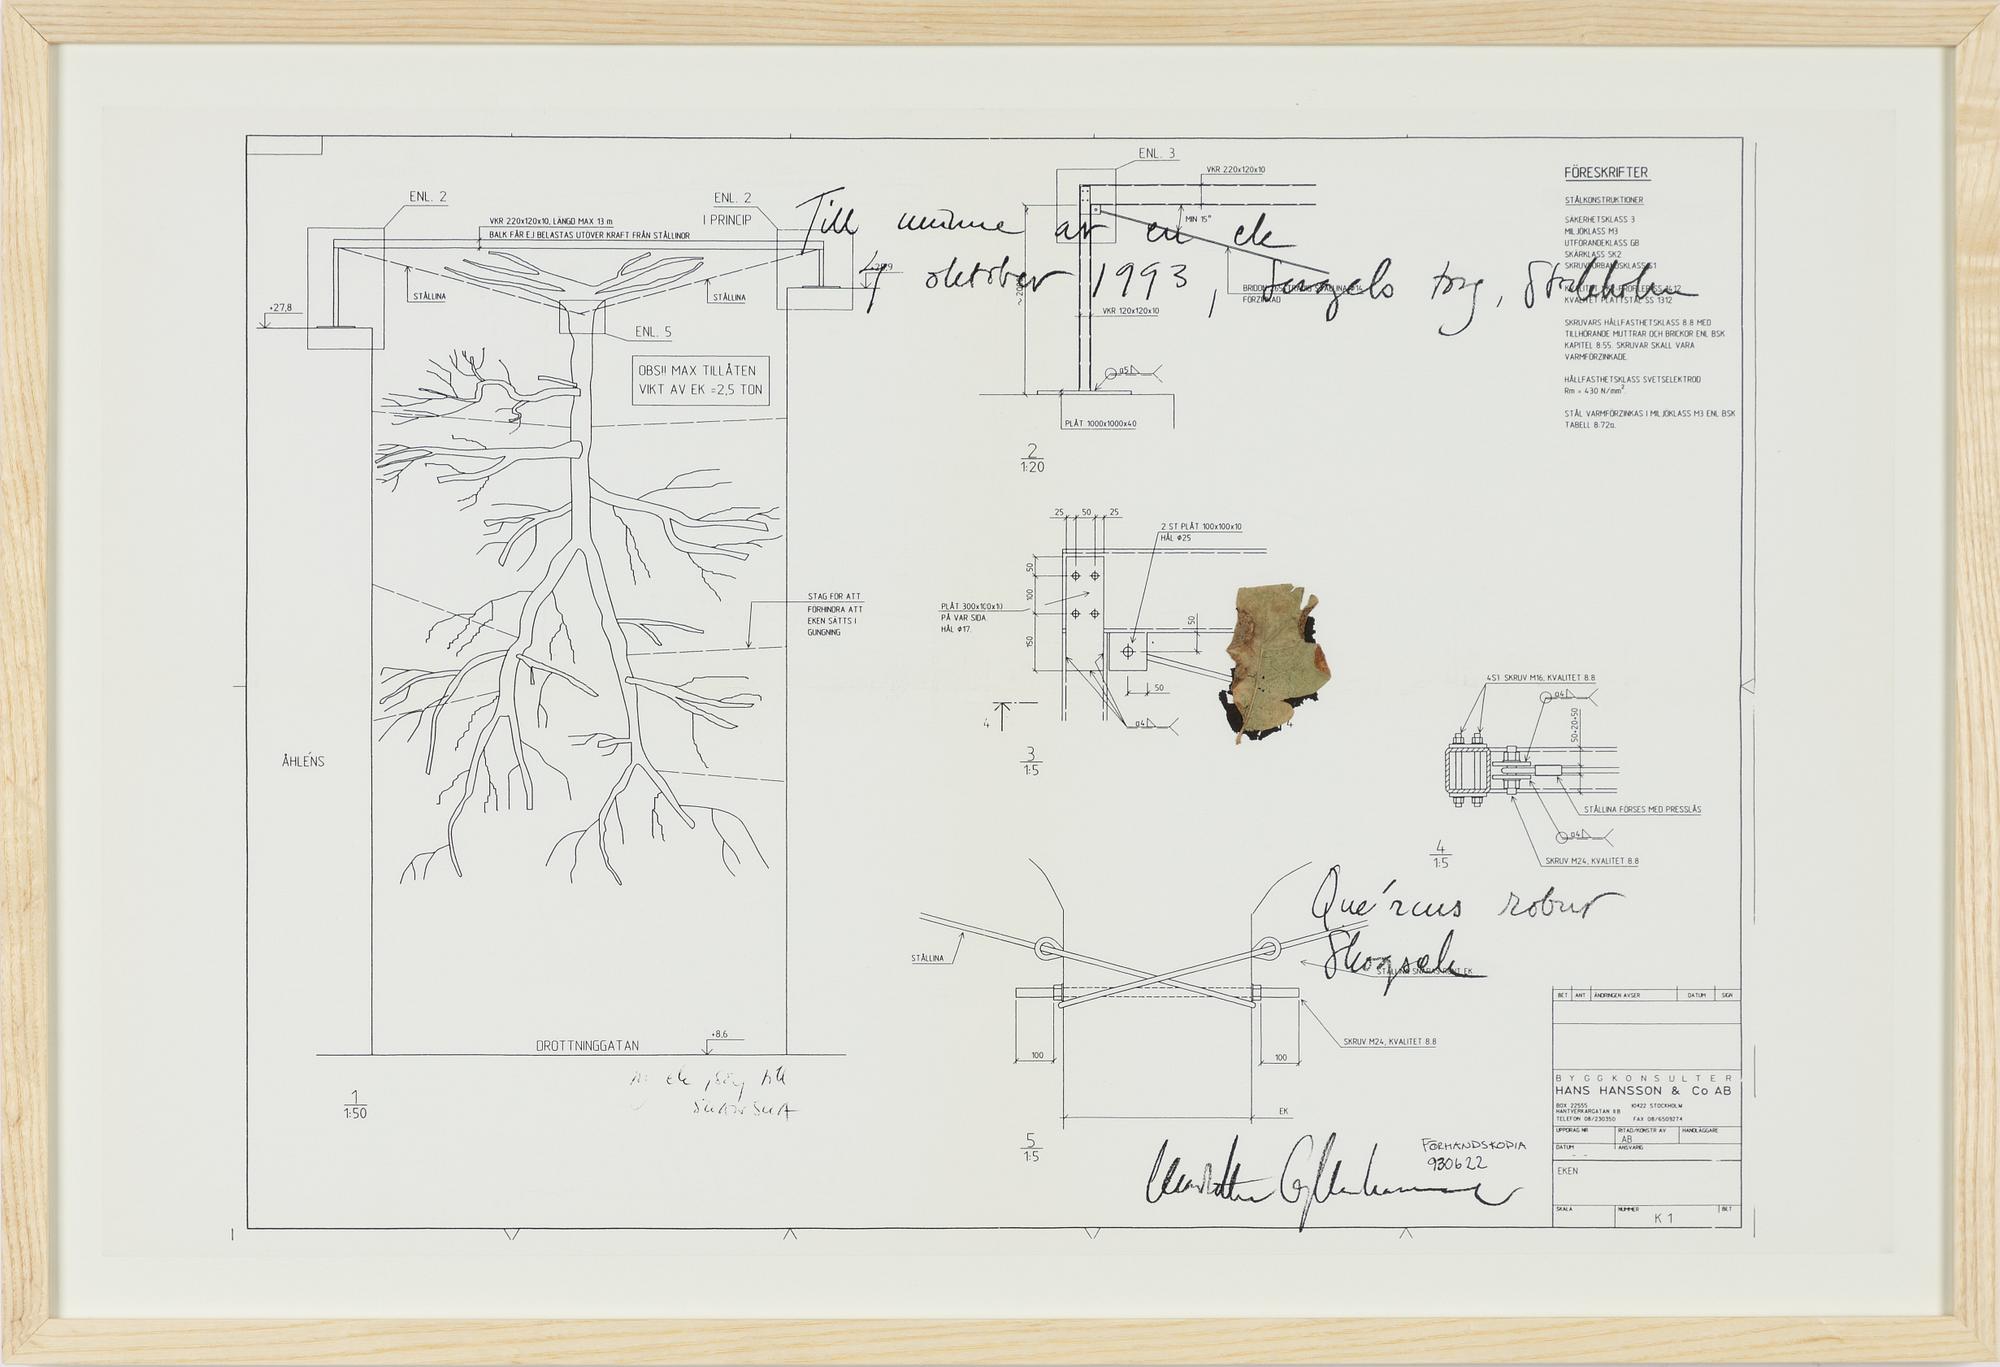 ENL. 2
ENL. 2
I PRINCIP
VKR 220x120x10, LÄNGD MAX 13 m
BALK FÅR EJ BELASTAS UTÖVER KRAFT FRÅN STÅLLINOR
STÅLLINA
STÅLLINA
+27,8
ENL. 5
OBS!! MAX TILLÅTEN
VIKT AV EK =2,5 TON
STAG FÖR ATT
FÖRHINDRA ATT
EKEN SÄTTS I
GUNGNING
ÅHLÉNS
DROTTNINGGATAN
+8.6
1
1:50
Till minne av en ek
4 oktober 1993, Sergels torg, Stockholm
ENL. 3
VKR 220x120x10
MIN 15°
FÖRZINKAD
VKR 120x120x10
a5
PLÅT 1000x1000x40
2
1:20
25 50 25
2 ST PLÅT 100x100x10
HÅL Ø25
50
100
150
PLÅT 300x100x10
PÅ VAR SIDA.
HÅL Ø17.
50
50
a4
4
4
3
1:5
FÖRESKRIFTER
STÅLKONSTRUKTIONER
SÄKERHETSKLASS 3
MILJÖKLASS M3
UTFÖRANDEKLASS GB
SKÄRKLASS SK2
SKRUVFÖRBANDSKLASS S1
KVALITET PLATTSTÅL SS 1312
SKRUVARS HÅLLFASTHETSKLASS 8.8 MED
TILLHÖRANDE MUTTRAR OCH BRICKOR ENL BSK
KAPITEL 8:55. SKRUVAR SKALL VARA
VARMFÖRZINKADE.
HÅLLFASTHETSKLASS SVETSELEKTROD
Rm = 430 N/mm².
STÅL VARMFÖRZINKAS I MILJÖKLASS M3 ENL BSK
TABELL 8:72a.
4ST SKRUV M16, KVALITET 8.8
a4
50+20+50
STÅLLINA FÖRSES MED PRESSLÅS
a4
SKRUV M24, KVALITET 8.8
4
1:5
Quércus robur
Skogsek
STÅLLINA
SKRUV M24, KVALITET 8.8
100
100
EK
5
1:5
FÖRHANDSKOPIA
930622
BET ANT ÄNDRINGEN AVSER DATUM SIGN
BYGGKONSULTER
HANS HANSSON & Co AB
BOX 22555 10422 STOCKHOLM
HANTVERKARGATAN 11B
TELEFON 08/230350 FAX 08/6509274
UPPDRAG NR RITAD/KONSTR AV HANDLÄGGARE
AB
DATUM ANSVARIG
EKEN
SKALA NUMMER BET
K 1